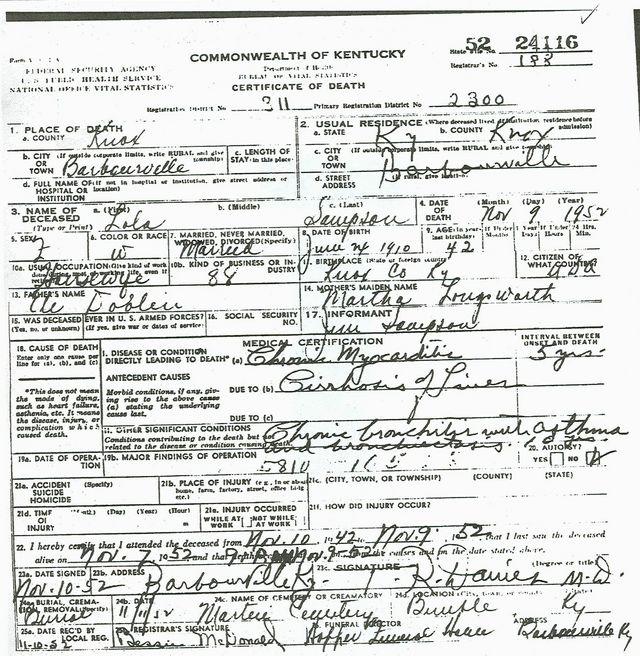 52 24116
State File No.
Form
FEDERAL SECURITY AGENCY
U. S. PUBLIC HEALTH SERVICE
NATIONAL OFFICE VITAL STATISTICS
COMMONWEALTH OF KENTUCKY
Department of Health
BUREAU OF VITAL STATISTICS
CERTIFICATE OF DEATH
Registrar's No. 188
Registration District No. 311 Primary Registration District No. 2300
1. PLACE OF DEATH
a. COUNTY Knox
2. USUAL RESIDENCE (Where deceased lived. If institution, residence before admission)
a. STATE Ky b. COUNTY Knox
b. CITY (If outside corporate limits, write RURAL and give township)
OR TOWN Barbourville
c. LENGTH OF STAY (in this place)
c. CITY (If outside corporate limits, write RURAL and give township)
OR TOWN Barbourville
d. FULL NAME OF (If not in hospital or institution, give street address or location)
HOSPITAL OR INSTITUTION
d. STREET ADDRESS (If rural, give location)
3. NAME OF DECEASED (Type or Print)
a. (First) Lola
b. (Middle)
c. (Last) Sampson
4. DATE OF DEATH (Month) (Day) (Year)
Nov 9 1952
5. SEX F
6. COLOR OR RACE W
7. MARRIED, NEVER MARRIED, WIDOWED, DIVORCED (Specify)
Married
8. DATE OF BIRTH
June 24 1910
9. AGE (In years last birthday) 42
If Under 1 Year Months Days
If Under 24 Hrs. Hours Min.
10a. USUAL OCCUPATION (Give kind of work done during most of working life, even if retired)
Housewife
10b. KIND OF BUSINESS OR INDUSTRY
88
11. BIRTHPLACE (State or foreign country)
Knox Co Ky
12. CITIZEN OF WHAT COUNTRY?
USA
13. FATHER'S NAME
14. MOTHER'S MAIDEN NAME
Martha Longsworth
15. WAS DECEASED EVER IN U. S. ARMED FORCES?
(Yes, no, or unknown) (If yes, give war or dates of service)
16. SOCIAL SECURITY NO.
17. INFORMANT
Sampson
18. CAUSE OF DEATH
Enter only one cause per line for (a), (b), and (c)
MEDICAL CERTIFICATION
INTERVAL BETWEEN ONSET AND DEATH
I. DISEASE OR CONDITION DIRECTLY LEADING TO DEATH* (a) Chronic Myocarditis 5 yrs.
*This does not mean the mode of dying, such as heart failure, asthenia, etc. It means the disease, injury, or complication which caused death.
ANTECEDENT CAUSES
Morbid conditions, if any, giving rise to the above cause (a) stating the underlying cause last.
DUE TO (b) Cirrhosis of Liver
DUE TO (c)
II. OTHER SIGNIFICANT CONDITIONS
Conditions contributing to the death but not related to the disease or condition causing death.
Chronic bronchitis with asthma
and bronchiectasis
19a. DATE OF OPERATION
19b. MAJOR FINDINGS OF OPERATION
5810
20. AUTOPSY?
YES NO
21a. ACCIDENT SUICIDE HOMICIDE (Specify)
21b. PLACE OF INJURY (e.g., in or about home, farm, factory, street, office bldg., etc.)
21c. (CITY, TOWN, OR TOWNSHIP) (COUNTY) (STATE)
21d. TIME OF INJURY (Month) (Day) (Year) (Hour)
21e. INJURY OCCURRED
WHILE AT WORK NOT WHILE AT WORK
21f. HOW DID INJURY OCCUR?
22. I hereby certify that I attended the deceased from Nov. 10 1942 to Nov. 9 1952 that I last saw the deceased
alive on Nov. 7 1952 and that death the causes and on the date stated above.
23a. DATE SIGNED
Nov. 10-52
23b. ADDRESS
Barbourville Ky.
23c. SIGNATURE (Degree or title)
M.D.
24a. BURIAL, CREMATION, REMOVAL (Specify)
Burial
24b. DATE
11 11/52
24c. NAME OF CEMETERY OR CREMATORY
Cemetery
24d. LOCATION
Bimble Ky
25a. DATE REC'D BY LOCAL REG.
11-10-52
25b. REGISTRAR'S SIGNATURE
Bessie McDonald
FUNERAL DIRECTOR
Hopper Funeral Home
ADDRESS
Barbourville Ky